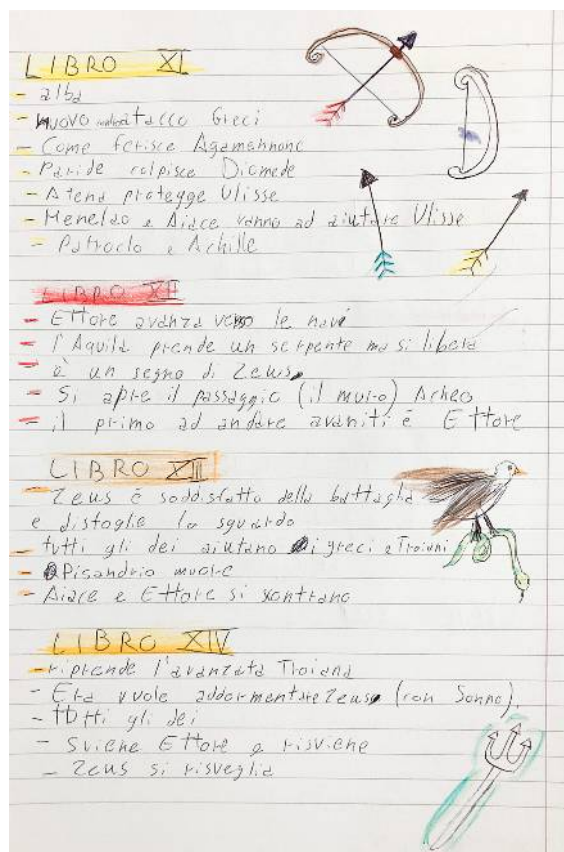 LIBRO XI
- alba
- nuovo attacco Greci
- Come ferisce Agamennone
- Paride colpisce Diomede
- Atena protegge Ulisse
- Menelao e Aiace vanno ad aiutare Ulisse
- Patroclo e Achille
LIBRO XII
- Ettore avanza verso le navi
- l'Aquila prende un serpente ma si libera
- è un segno di Zeus
- Si apre il passaggio (il muro) Acheo
- il primo ad andare avaniti é Ettore
LIBRO XIII
- Zeus é soddisfatto della battaglia
e distoglie lo sguardo
- tutti gli dei aiutano i greci e Troiani
- Pisandrio muore
- Aiace e Ettore si scontrano
LIBRO XIV
- riprende l'avanzata Troiana
- Era vuole addormentare Zeus (con Sonno).
- tutti gli dei
- Sviene Ettore e risviene
- Zeus si risveglia